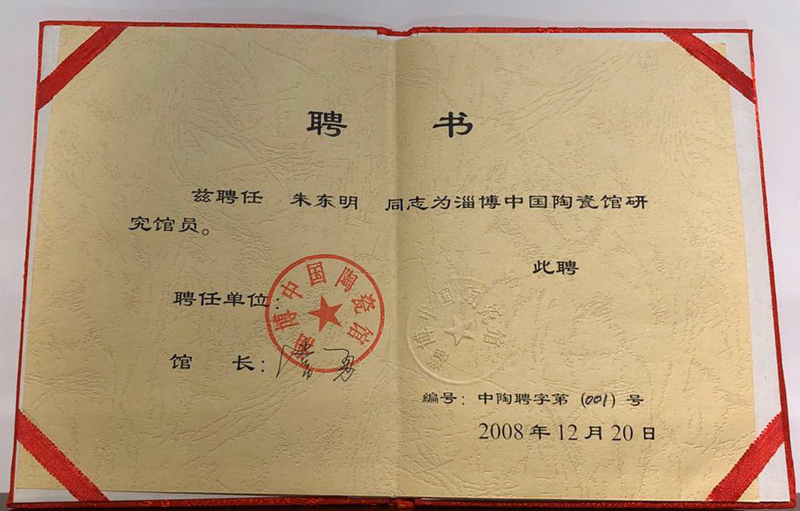 聘 书
兹聘任 朱东明 同志为淄博中国陶瓷馆研
究馆员。
此聘
聘任单位:
淄博中国陶瓷馆
馆 长:
编号: 中陶聘字第 (001) 号
2008 年 12 月 20 日